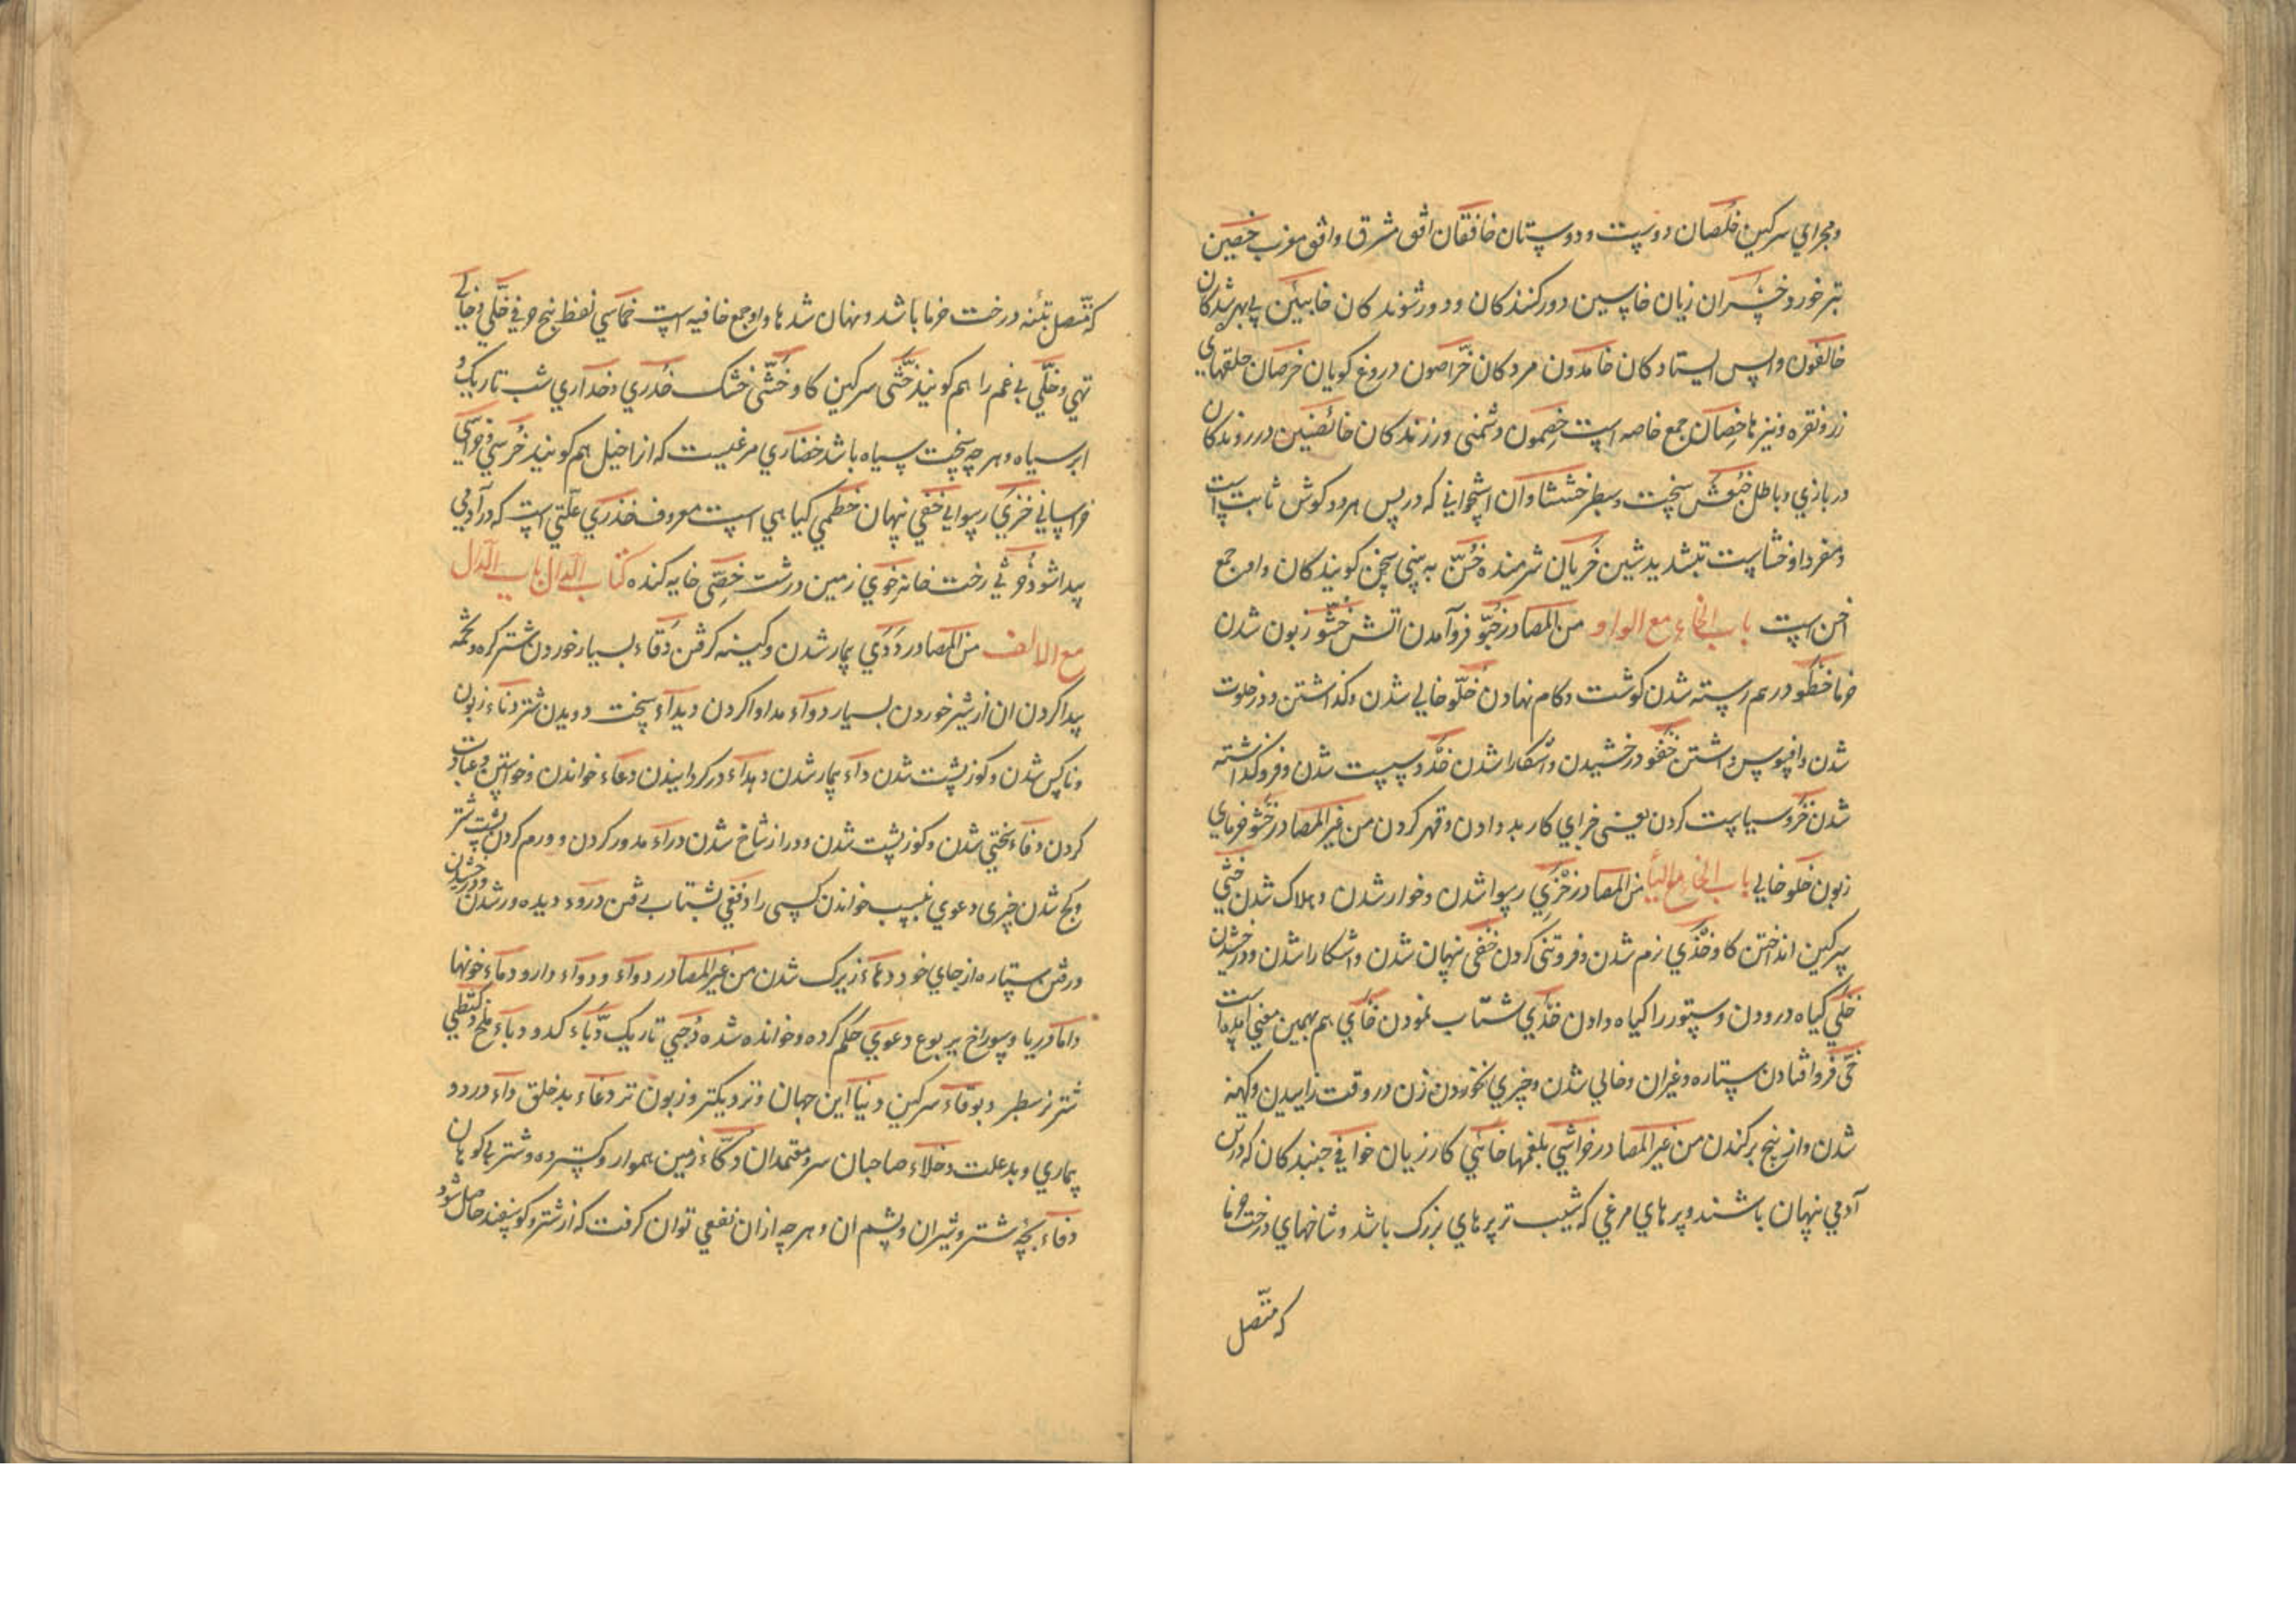 ومجرای سرکین خلصان دوست ودوستان خافقان افق مشرق وافق مغرب خصین
تبر خورد خسران زیان خاسین دورکنندکان ودورشوندکان خایبین بی بهرشدکان
خالفون واپس ایستادکان خامدون مردکان خراصون دروغ کویان خرصان حلقهای
زر ونقره ونیزها خصان جمع خاصه است خصمون دشمنی ورزندکان خائضین درروندکان
دربازی وباطل سخت وسطبر خششا وان استخوانی که در پس هر دو کوش ثابت است
ومفرد او خشاست بتشدید شین خزیان شرمنده خن به بینی سخن کویندکان واو جمع
اخن است باب الخاء مع الواو من المصادر خبو فروآمدن آتش خشو زبون شدن
خرما خظو درهم رسته شدن کوشت وکام نهادن خلو خالی شدن وکذاشتن ودر خلوت
شدن وافسوس داشتن خفو درخشیدن وآشکارا شدن خذو سست شدن وفروکذاشته
شدن خزو سیاست کردن یعنی جزای کار بد دادن وقهر کردن من غیر المصادر خشو خرمای
زبون خلو خالی باب الخاء مع الیاء من المصادر خزی رسوا شدن وخوار شدن وهلاک شدن خثی
سرکین انداختن کاو خذی نرم شدن وفروتنی کردن خفی نهان شدن واشکارا شدن ودرخشیدن
خلی کیاه درودن وستور را کیاه دادن خدی شتاب نمودن خای هم بهمین معنی آمده است
خی فروافتادن ستاره وغیران وخالی شدن وچیزی نخوردن زن در وقت زاییدن وکهنه
شدن واز بیخ برکندن من غیر المصادر خواشی بلغمها خائنی کارزیان خوافی جنبندکان که در تن
آدمی نهان باشند وپرهای مرغی که شیب تر پرهای بزرک باشد وشاخهای درخت خرما
که متصل
که متصل بتنه درخت خرما باشد ونهان شدها واو جمع خافیه است خماسی لفظ پنج حرفی خلی وخالی
تهی وخلی بی غم را هم کویند خثی سرکین کاو خشی خشک خدری وخداری شب تاریک و
ابر سیاه وهر چه سخت سیاه باشد خضاری مرغیست که از اخیل هم کویند خرسی وخراسی
خراسانی خزی رسوایی خفی نهان خطمی کیاهی است معروف خذری علتی است که در آدمی
پیدا شود خرثی رخت خانه خوی زمین درشت خصی خایه کنده کتاب الدال باب الدال
مع الالف من المصادر دوی بیمار شدن وکینه کرفتن دقاء بسیار خوردن شتر کره وتخمه
پیدا کردن ان از شیر خوردن بسیار دواء مداوا کردن دیداء سخت دویدن شتر دناء زبون
وناکس شدن وکوزپشت شدن داء بیمار شدن دهداء درکردانیدن دعاء خواندن وخواستن وعبادت
کردن دفاء سختی شدن وکوزپشت شدن ودراز شاخ شدن دراء مدور کردن وورم کردن پشت شتر
وکج شدن چیزی دعوی بنسب خواندن کسی را دففی بشتاب رفتن دروء دیده ور شدن ودرخشیدن
ورفتن ستاره از جای خود دهاء زیرک شدن من غیر المصادر دواء ودواء دارو دماء خونها
داما دریا وسوراخ یربوع دعوی حکم کرده وخوانده شده دجی تاریک دباء کدو دباء ملخ دکنظی
شتر نر سطبر دبوقاء سرکین دنیا این جهان ونزدیکتر وزبون تر دعاء بدخلق داء درد و
بیماری وبدعلت دخلاء صاحبان سر ومعتمدان دکاء زمین هموار وکسترده وشتر بی کوهان
دفاء بچه شتر وشیر ان وپشم ان وهر چه از ان نفعی توان کرفت که از شتر وکوسفند حاصل شود